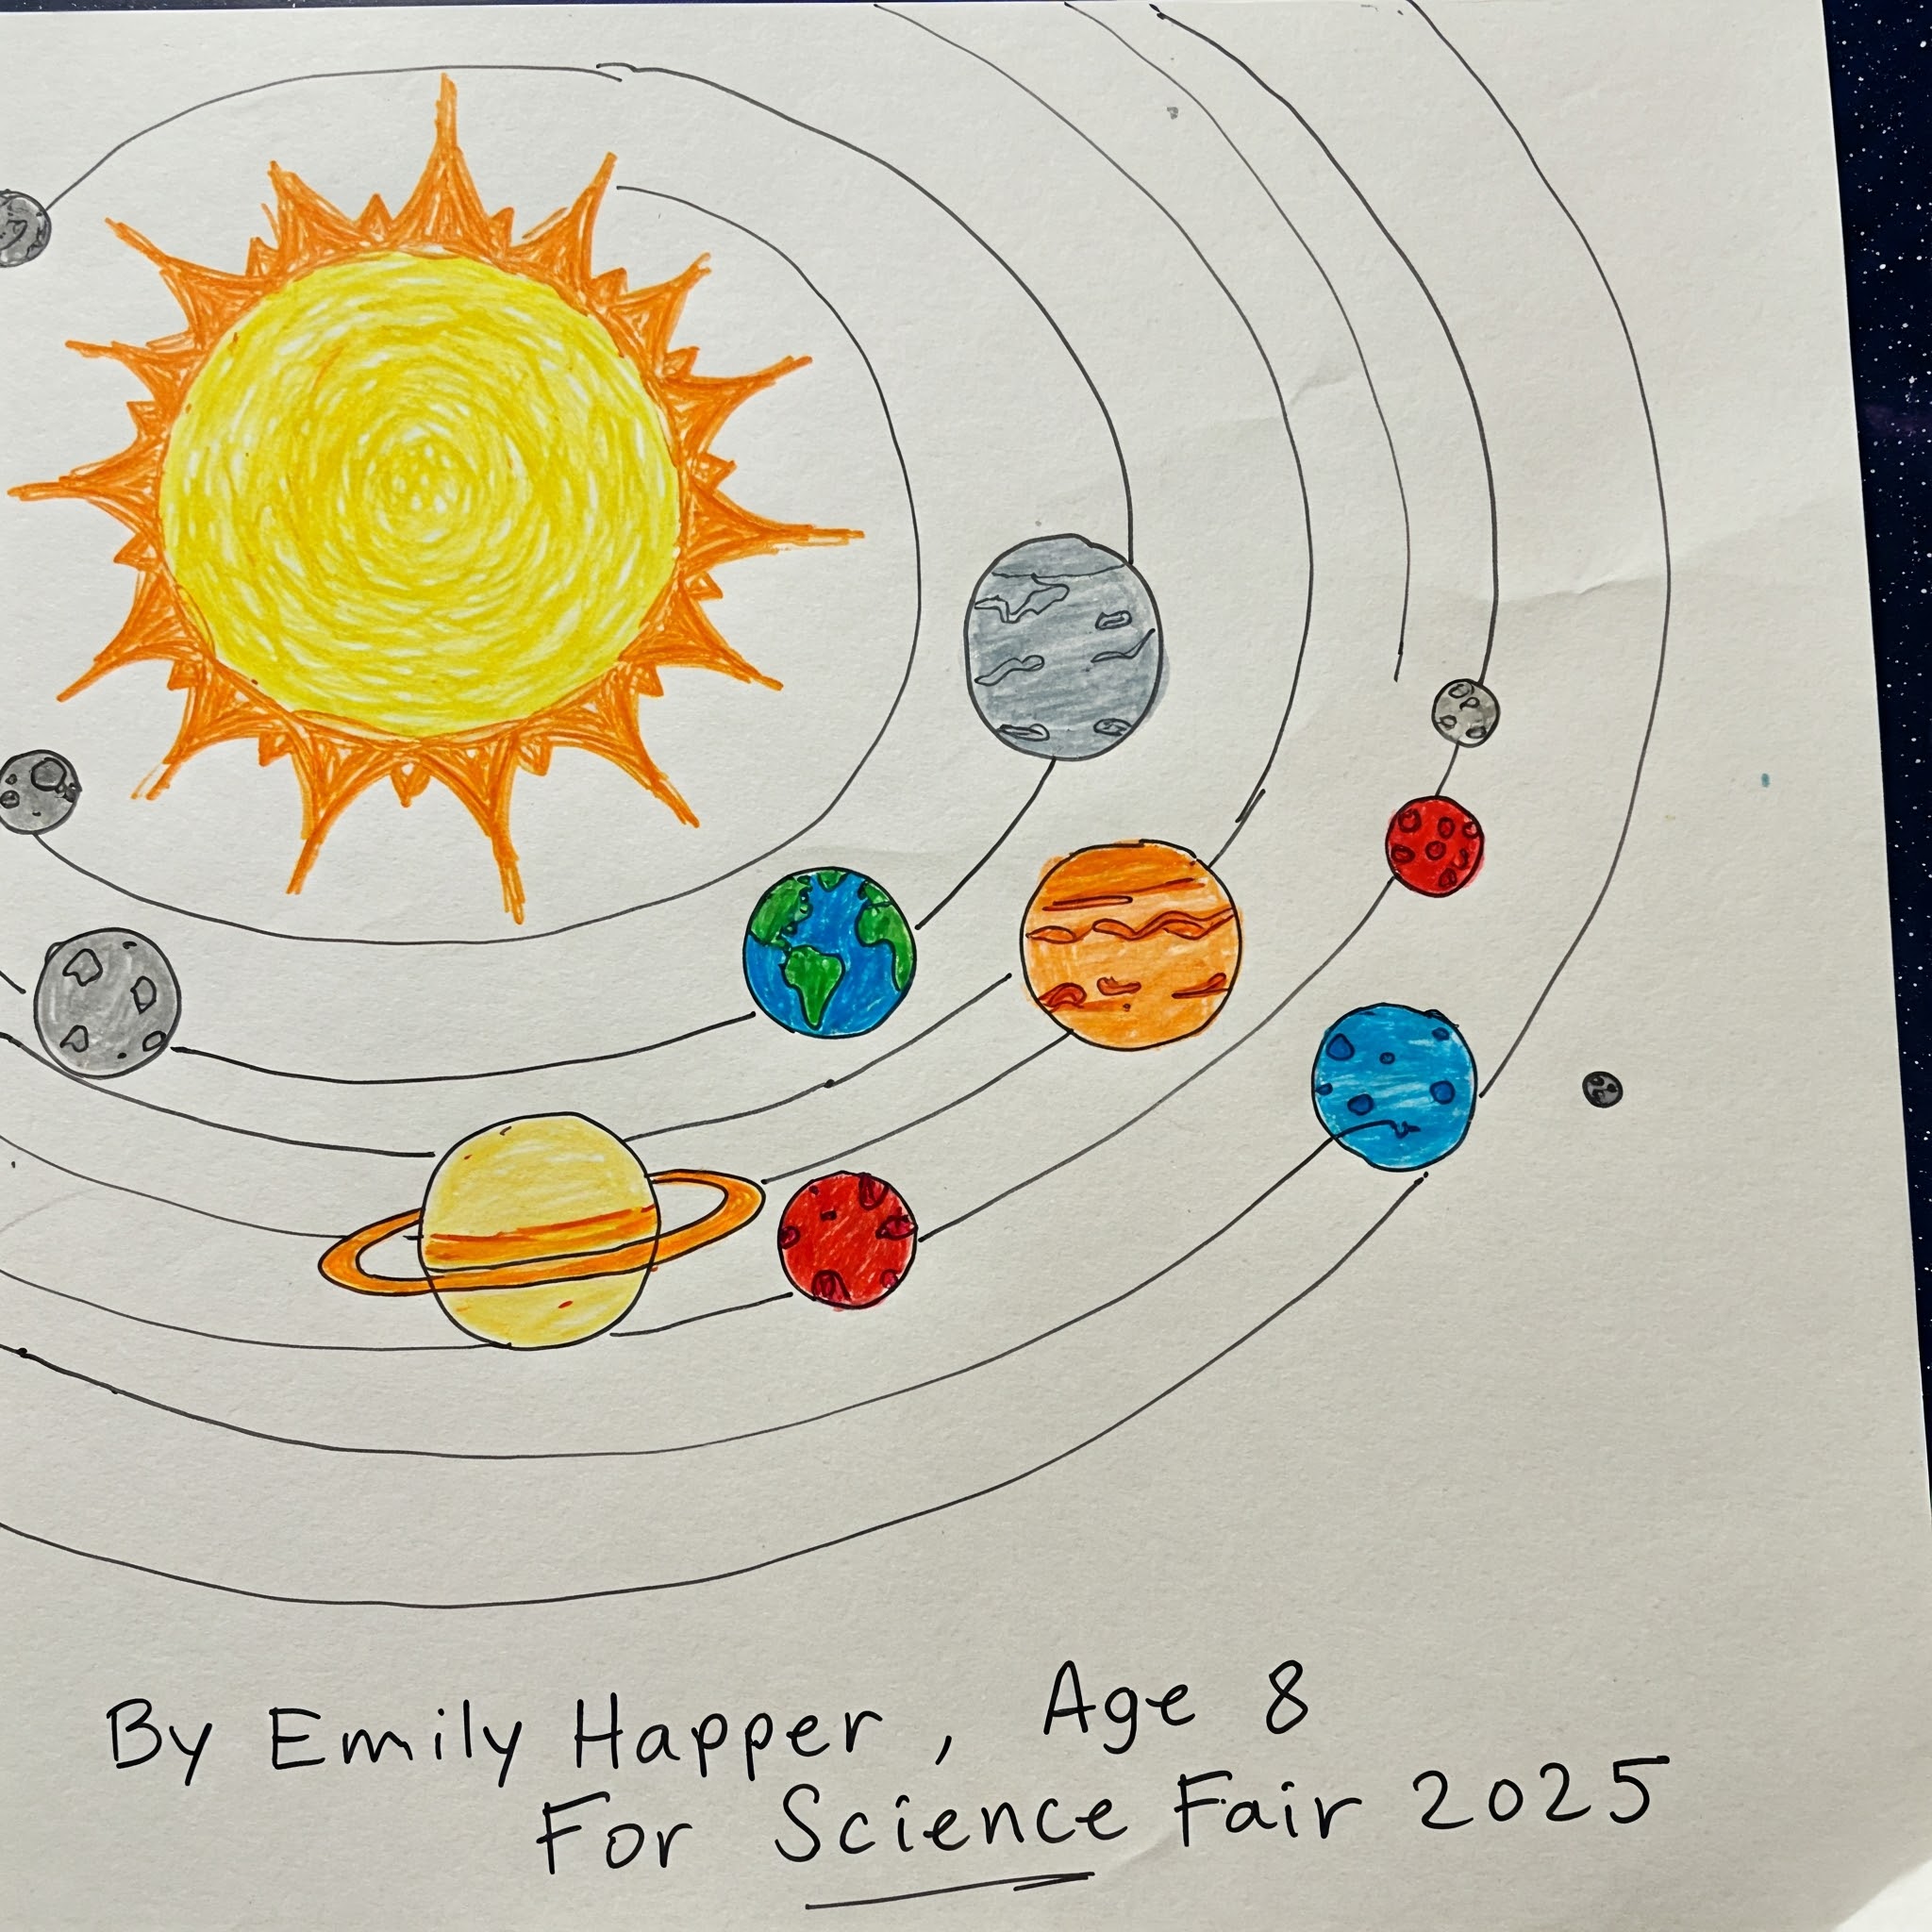 By Emily Happer, Age 8
For Science Fair 2025